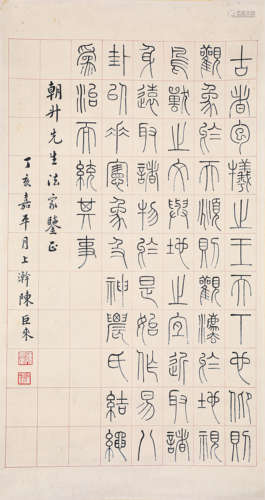 古者宓犧之王天下也仰則
觀象於天頫則觀灋於地視
鳥獸之文與地之宜近取諸
身遠取諸物於是始作易八
卦以垂憲象及神農氏結繩
爲治而統其事
朝升先生法家鑒正
丁亥嘉平月上澣陳巨來